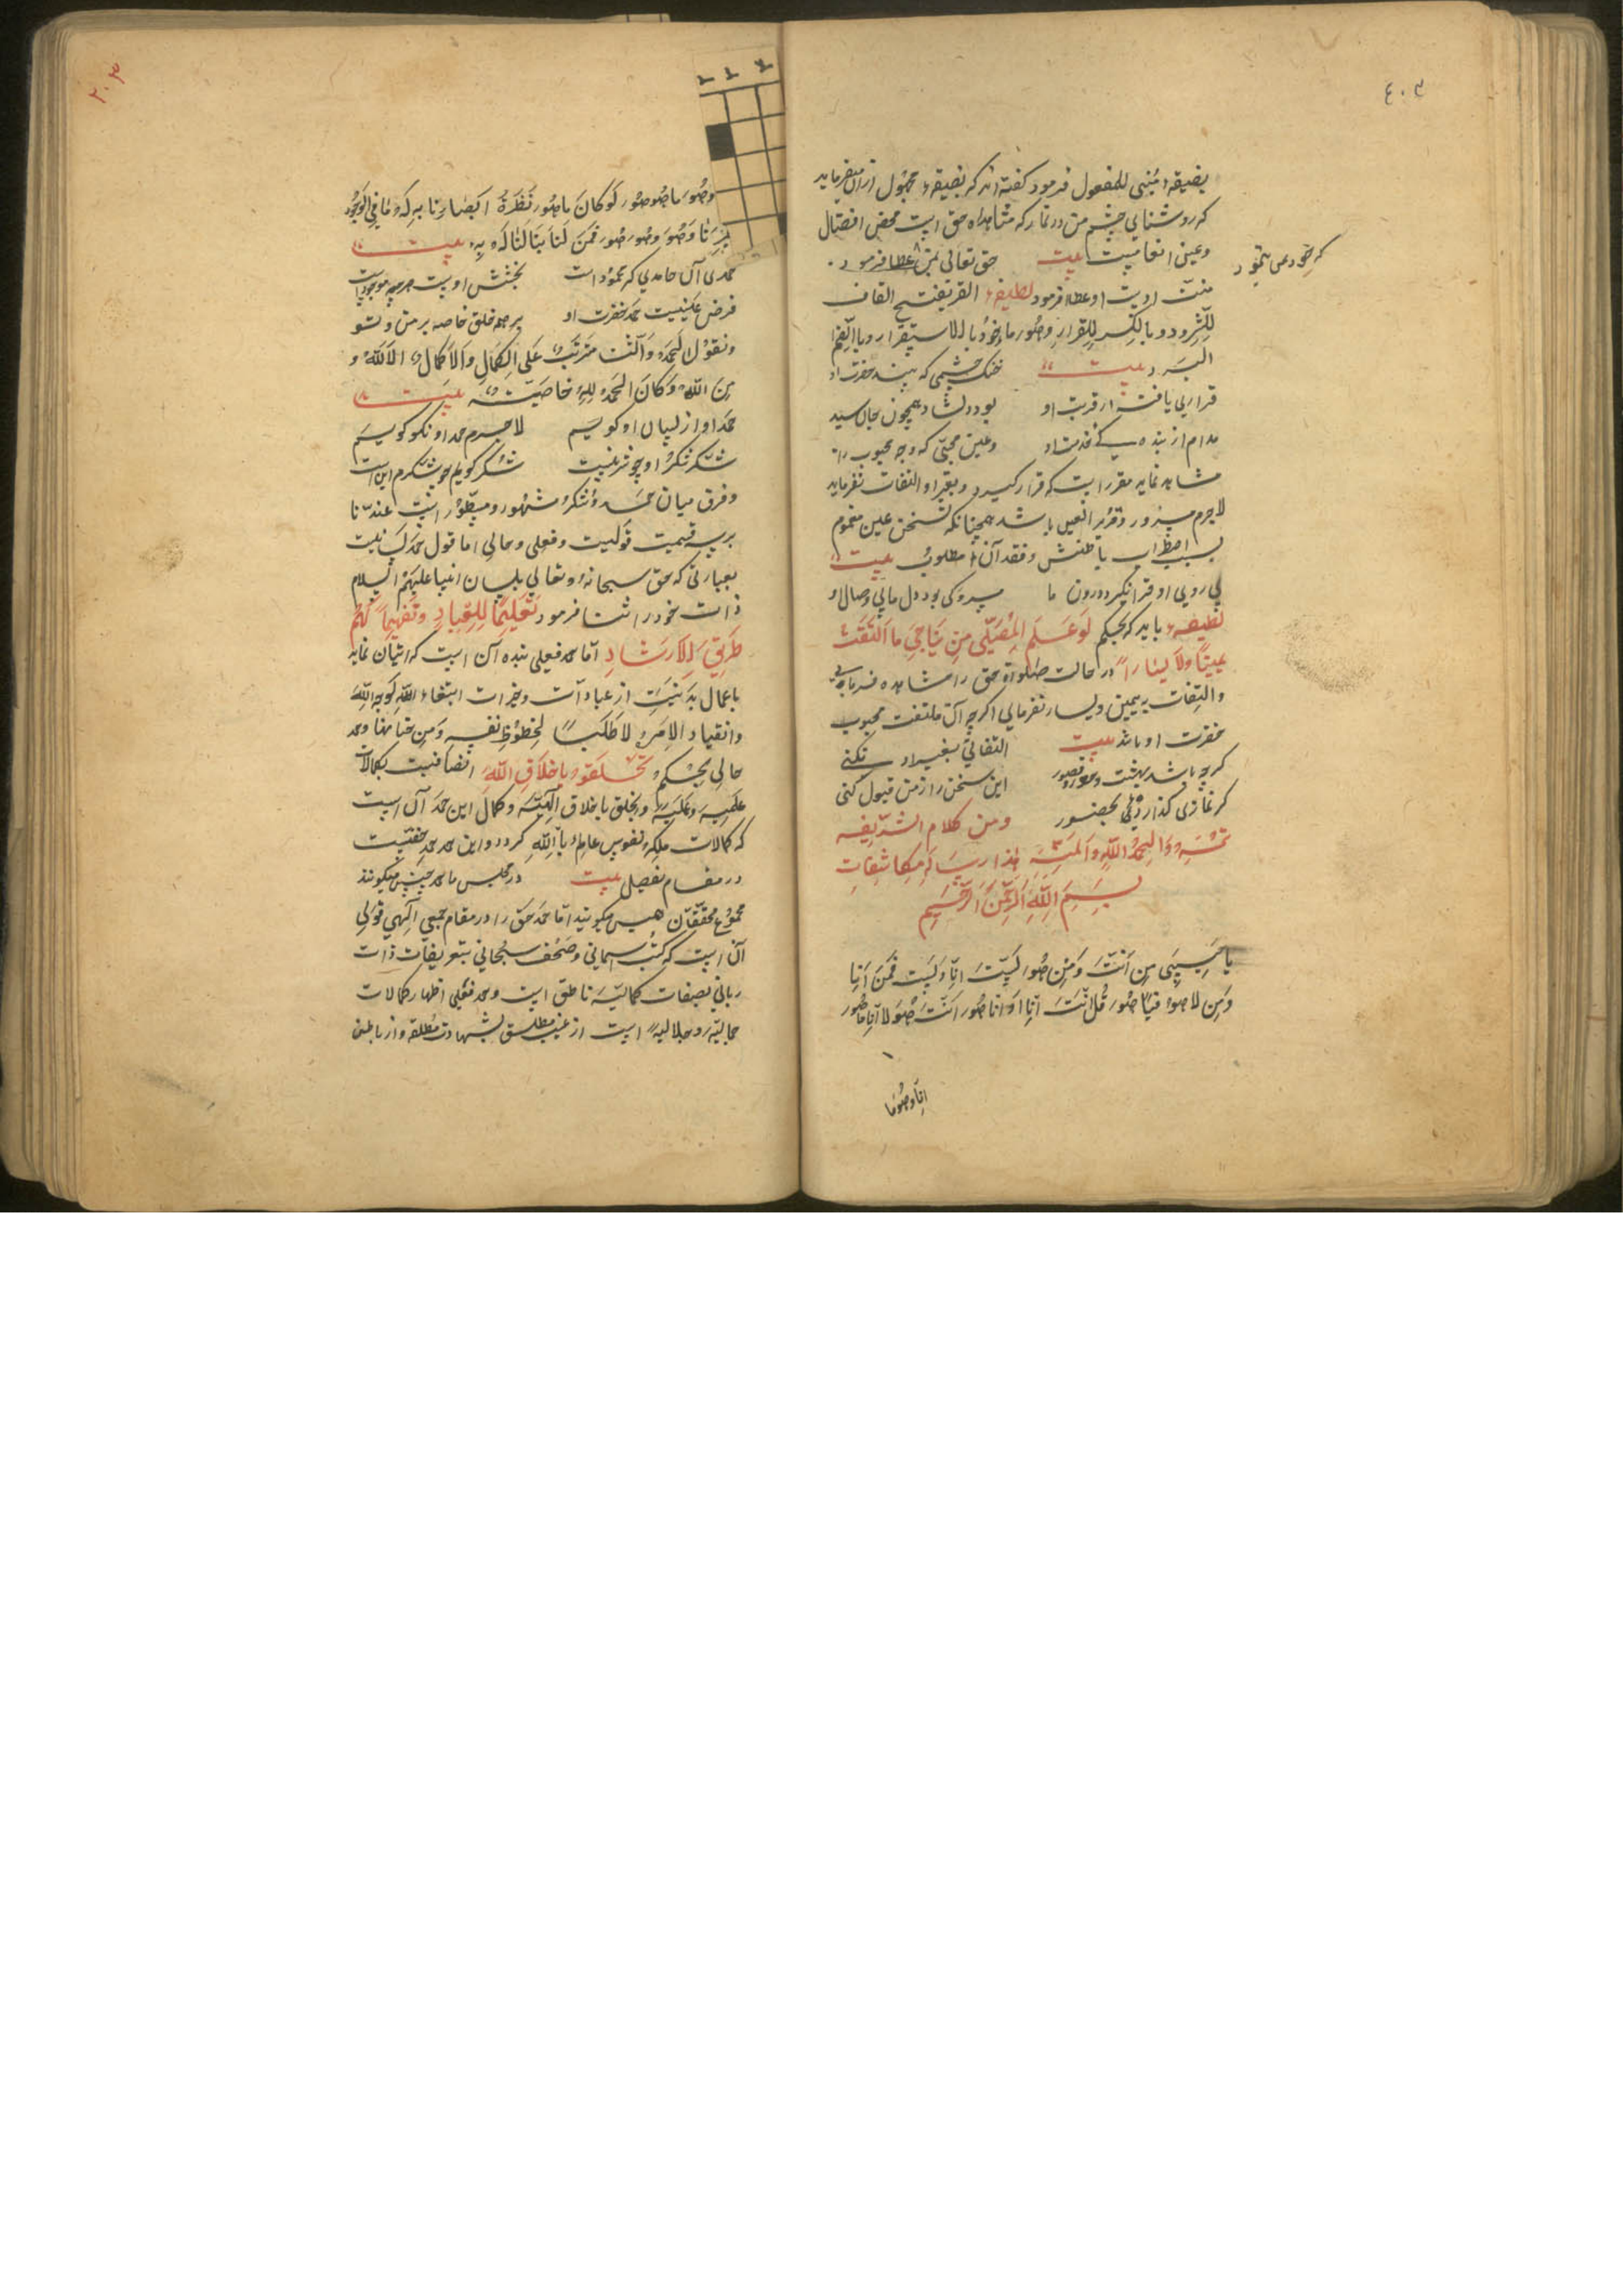 ٤٠٣
بصیغهٔ مبنی للمفعول فرمود کفته اند که بصیغهٔ مجهول ازان میفرماید
که روشنایی چشم من در نماز که مشاهده حق است محض افضال
وعین انعامست بیت حق تعالی بمن عطا فرمود
منت اوست او عطا فرمود لطیفه القر بفتح القاف
للتبرد و بالکسر للقرار وهو ماخوذ بالاستقرار و بالضم
البرد بیت خنک چشمی که بیند حضرت او
قراری یافته از قربت او بود دلشاد همچون
مدام از بنده وعین محبتی که وجه محبوب را
مشاهد نماید مقرر است که قرار کیرد وبغیر او التفات نفرماید
لاجرم سرور وقریر العین باشد همچنانکه تسخن عین مغموم
بسبب اضطراب باطنش وفقدان مطلوب بیت
بی روی او قرار نکیرد درون ما دل ما بی وصال او
لطیفه باید که بحکم لو علم المصلی من یناجی ما التفت
یمینا ولا یسارا در حالت صلواة حق را مشاهده فرمایی
والتفات بیمین ویسار نفرمایی اکرچه آن ملتفت محبوب
حضرت او باشد بیت التفاتی بغیر او نکنی
کرچه باشد بهشت وحور وقصور این سخن را از من قبول کنی
کر نمازی کذاردهٔ بحضور ومن کلام الشریفه
تمت والحمد لله والمنه هذا رساله مکاشفات
بسم الله الرحمن الرحیم
یا حبیبی من انت ومن هو لست انا ولست فمن انا
ومن لا هو فیا هو قل انت انا او انا هو انت هو لا انا ما هو
انا وهو ما
٢٠٣
وهو ما هو هو لو کان ما هو نظرة ابصارنا به له ما فی الوجود
غیرنا وهو وهو هو فمن لنا بنا لنا له به بیت
حمدی آن حامدی که محمود است بخشش اوست هرچه موجود است
فرض عینیست حمد حضرت او بر همه خلق خاصه بر من وتو
ونقول الحمد والثنا مترتب علی الکمال ولا کمال الا لله و
من الله وکان الحمد لله خاصیته بیت
حمد او از لسان او کویم لاجرم حمد او نکو کویم
شکر شکر او چو شکر نیست شکر کویم چو شکرم این است
وفرق میان حمد وشکر مشهور ومسطور است عندنا
بر سه قسمست قولیست وفعلی وحالی اما قول حمد لسانیست
بعبارتی که حق سبحانه وتعالی بلسان انبیا علیهم السلام
ذات خود را ثنا فرمود تعلیما للعباد وتفهیما لهم
طریق الارشاد اما حمد فعلی بنده آن است که اتیان نماید
باعمال بدنیت از عبادات وخیرات ابتغاء لوجه الله
وانقیاد الامره لا طلبا لحظوظ نفسه ومن وحمد
حالی بحکم تخلقوا باخلاق الله اتصافیست بکمالات
علمیه وعملیه وتخلق باخلاق الهیه وکمال این حمد آن است
که کمالات ملکه نفوس عالم بالله کردد واین حمد حمد حقست
در مقام تفصیل بیت در مجلس ما حمد چنین میکویند
مجموع محققان همین میکویند اما حمد حق را در مقام جمعی الهی قولی
آن است که کتب سمانی وصحف سبحانی بتعریفات ذات
ربانی بصفات کمالیه ناطق است وحمد فعلی اظهار کمالات
جمالیه وجلالیه است از غیب مطلق بشهادت مطلقه واز باطن